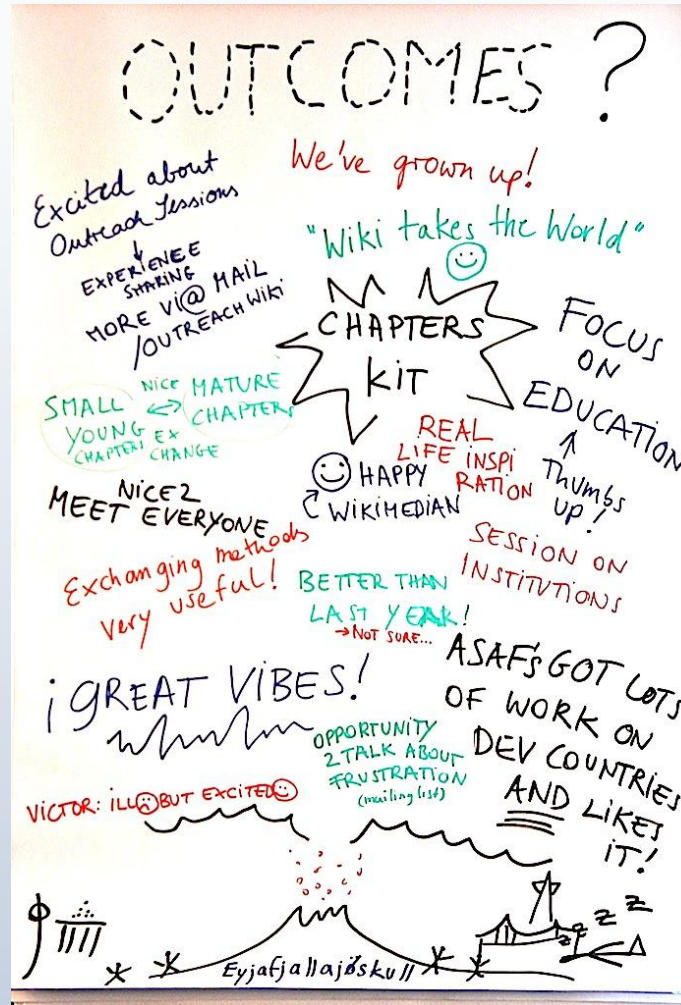 OUTCOMES ?
We've grown up!
Excited about
Outreach Sessions
EXPERIENCE
SHARING
MORE Vi@ MAIL
/OUTREACH WIKI
"Wiki takes the World"
CHAPTERS
KIT
FOCUS
ON
EDUCATION
Thumbs
up!
SMALL
YOUNG
CHAPTERS
NICE
EX
CHANGE
MATURE
CHAPTERS
REAL
LIFE INSPI
RATION
HAPPY
WIKIMEDIAN
NICE 2
MEET EVERYONE
SESSION ON
INSTITUTIONS
Exchanging methods
very useful!
BETTER THAN
LAST YEAR!
→NOT SURE...
ASAF's GOT LOTS
OF WORK ON
DEV COUNTRIES
AND LIKES
IT!
¡GREAT VIBES!
OPPORTUNITY
2 TALK ABOUT
FRUSTRATION
(mailing list)
VICTOR: ILL BUT EXCITED
z z z z
Eyjafjallajøskull